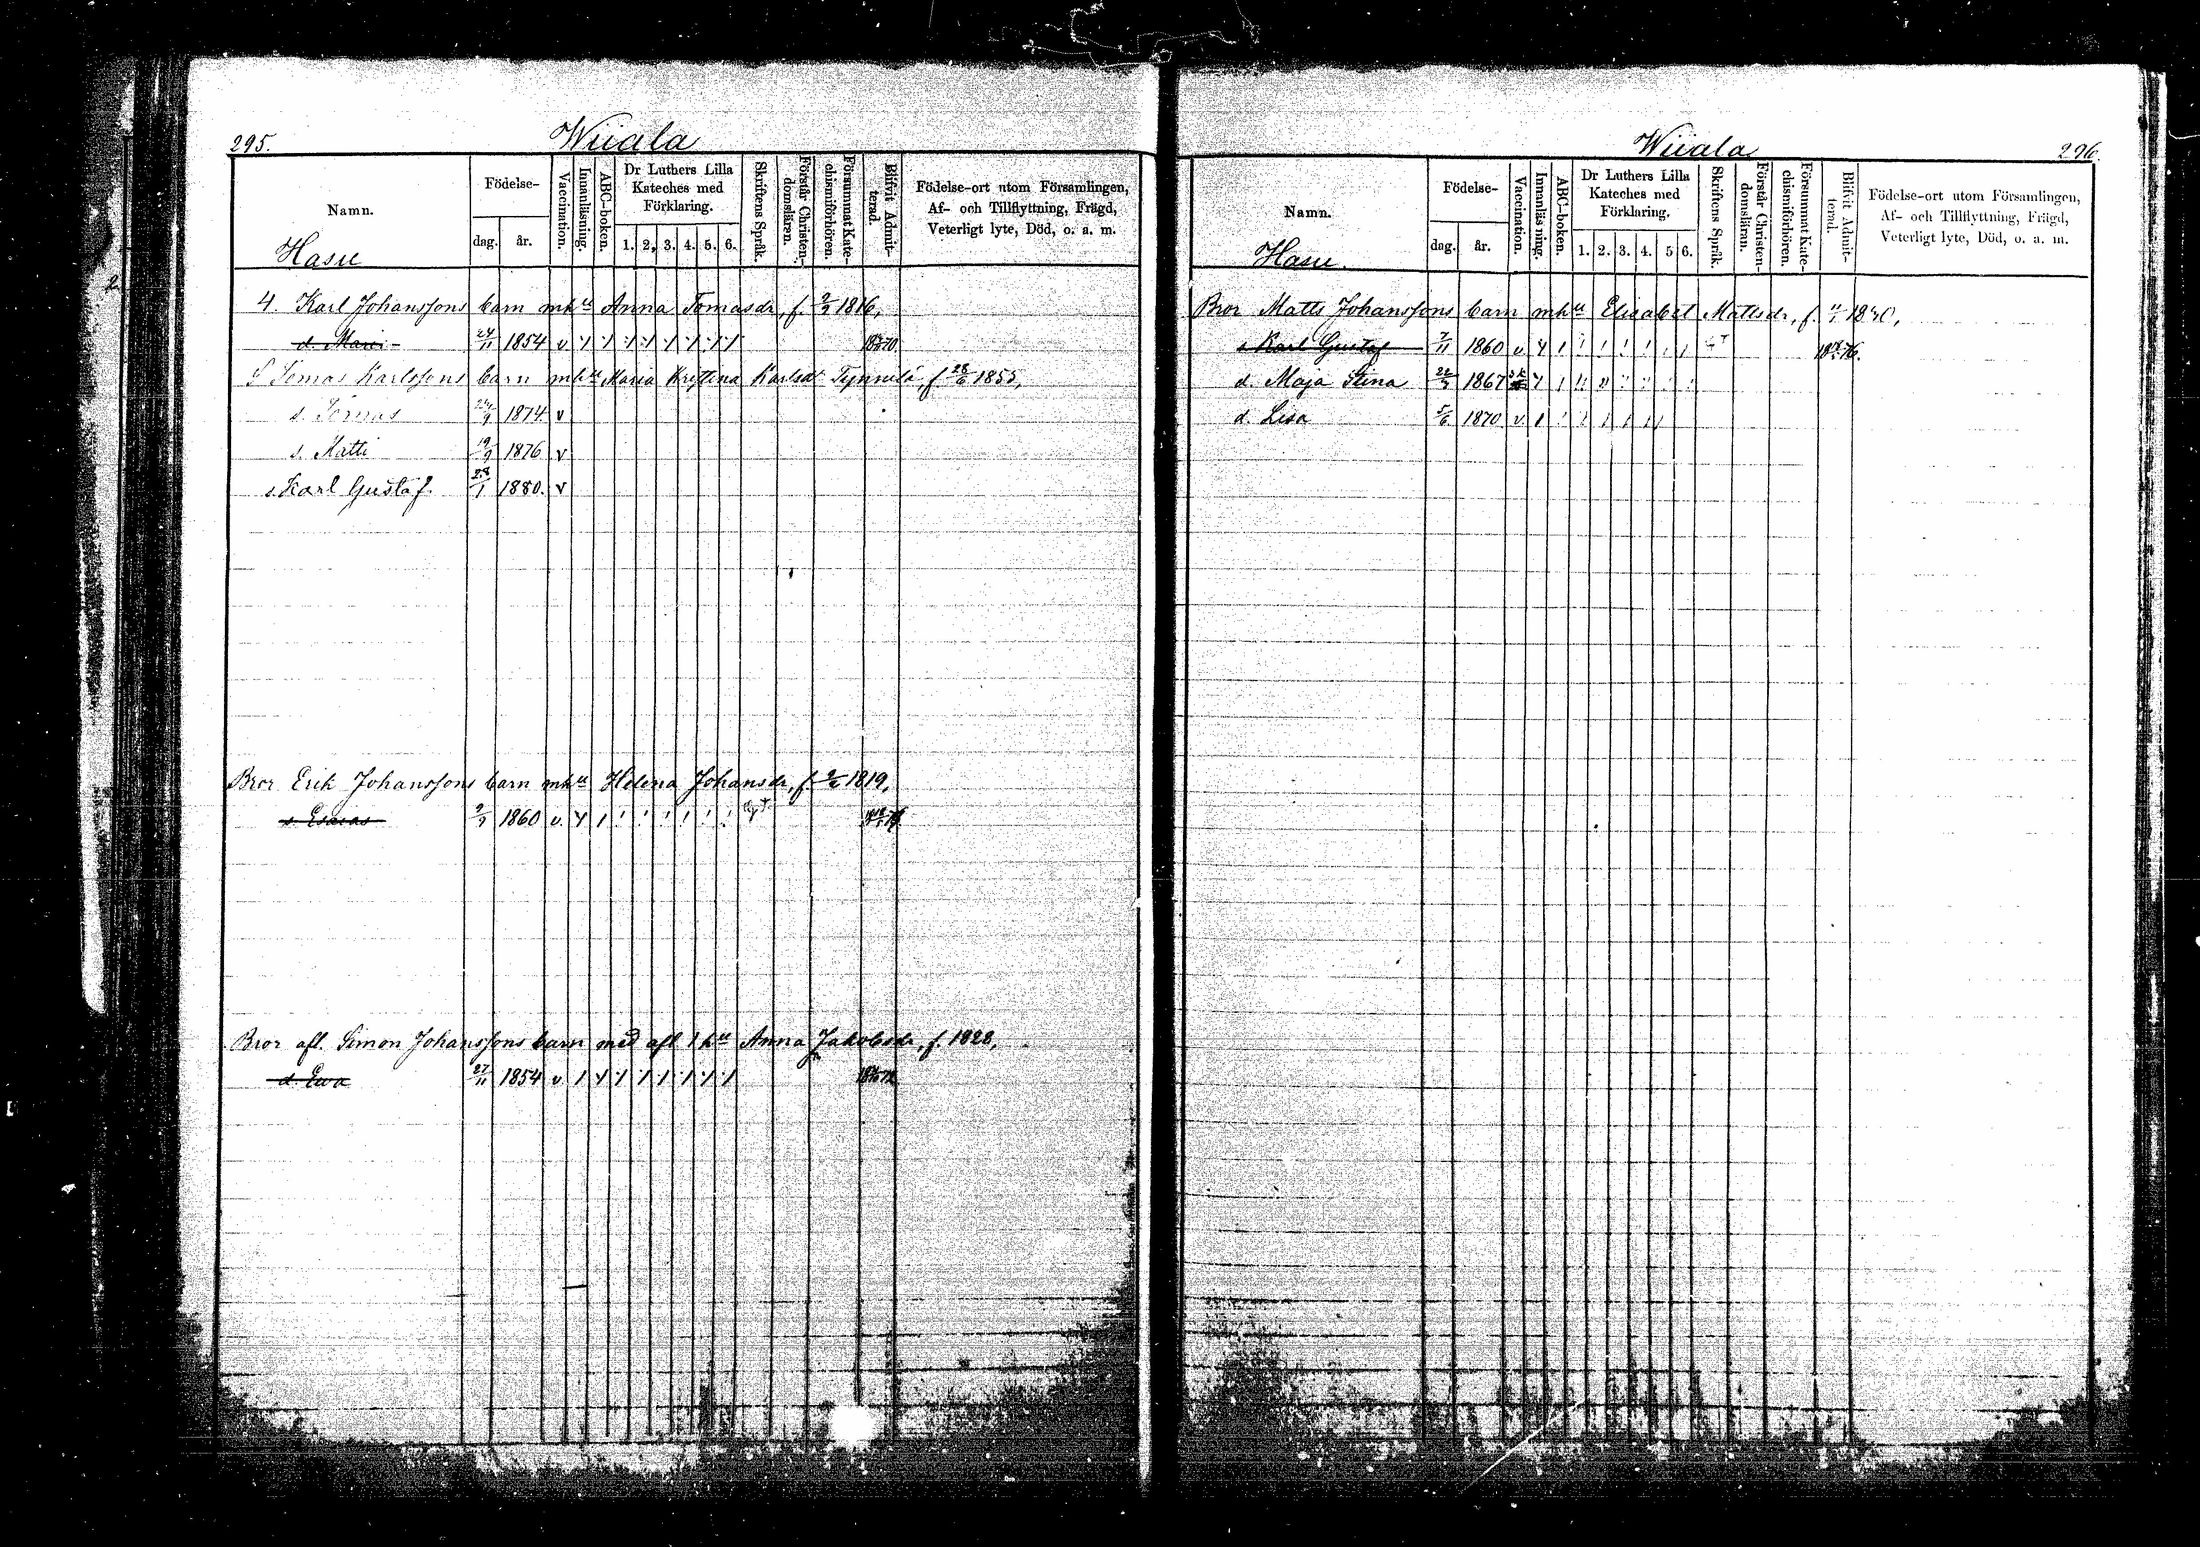 295. Wiiala
Namn.
Födelse-
dag. år.
Vaccination.
Innanläsning.
ABC-boken.
Dr Luthers Lilla
Kateches med
Förklaring.
1. 2. 3. 4. 5. 6.
Skriftens Språk.
Förstår Christen-
domsläran.
Försummat Kate-
chismiförhören.
Blifvit Admit-
terad.
Födelse-ort utom Församlingen,
Af- och Tillflyttning, Frägd,
Veterligt lyte, Död, o. a. m.
Hasu
4. Karl Johanssons barn mhu Anna Tomasdr, f. 1816,
d. Mari 24/11 1854 v.
S Tomas Karlssons barn mhu Maria Kristina Karlsdr Tynnilä, f 28/6 1855,
s. Tomas 24/9 1874 v
s. Matti 19/9 1876 v
s. Karl Gustaf. 28/1 1880. v
Bror Erik Johanssons barn mhu Helena Johansdr, f. 1819,
s. Esaias 1860 v.
Bror afl. Simon Johanssons barn med afl 1 hu Anna Jakobsdr, f. 1828,
d. Ewa 27/11 1854 v.
Wiiala 296.
Namn.
Födelse-
dag. år.
Vaccination.
Innanläsning.
ABC-boken.
Dr Luthers Lilla
Kateches med
Förklaring.
1. 2. 3. 4. 5 6.
Skriftens Språk.
Förstår Christen-
domsläran.
Försummat Kate-
chismiförhören.
Blifvit Admit-
terad.
Födelse-ort utom Församlingen,
Af- och Tillflyttning, Frägd,
Veterligt lyte, Död, o. a. m.
Hasu.
Bror Matts Johanssons barn mhu Elisabet Mattsdr, f. 1840,
s Karl Gustaf 7/11 1860 v.
d. Maja Stina 1867
d. Lisa 5/6 1870 v.